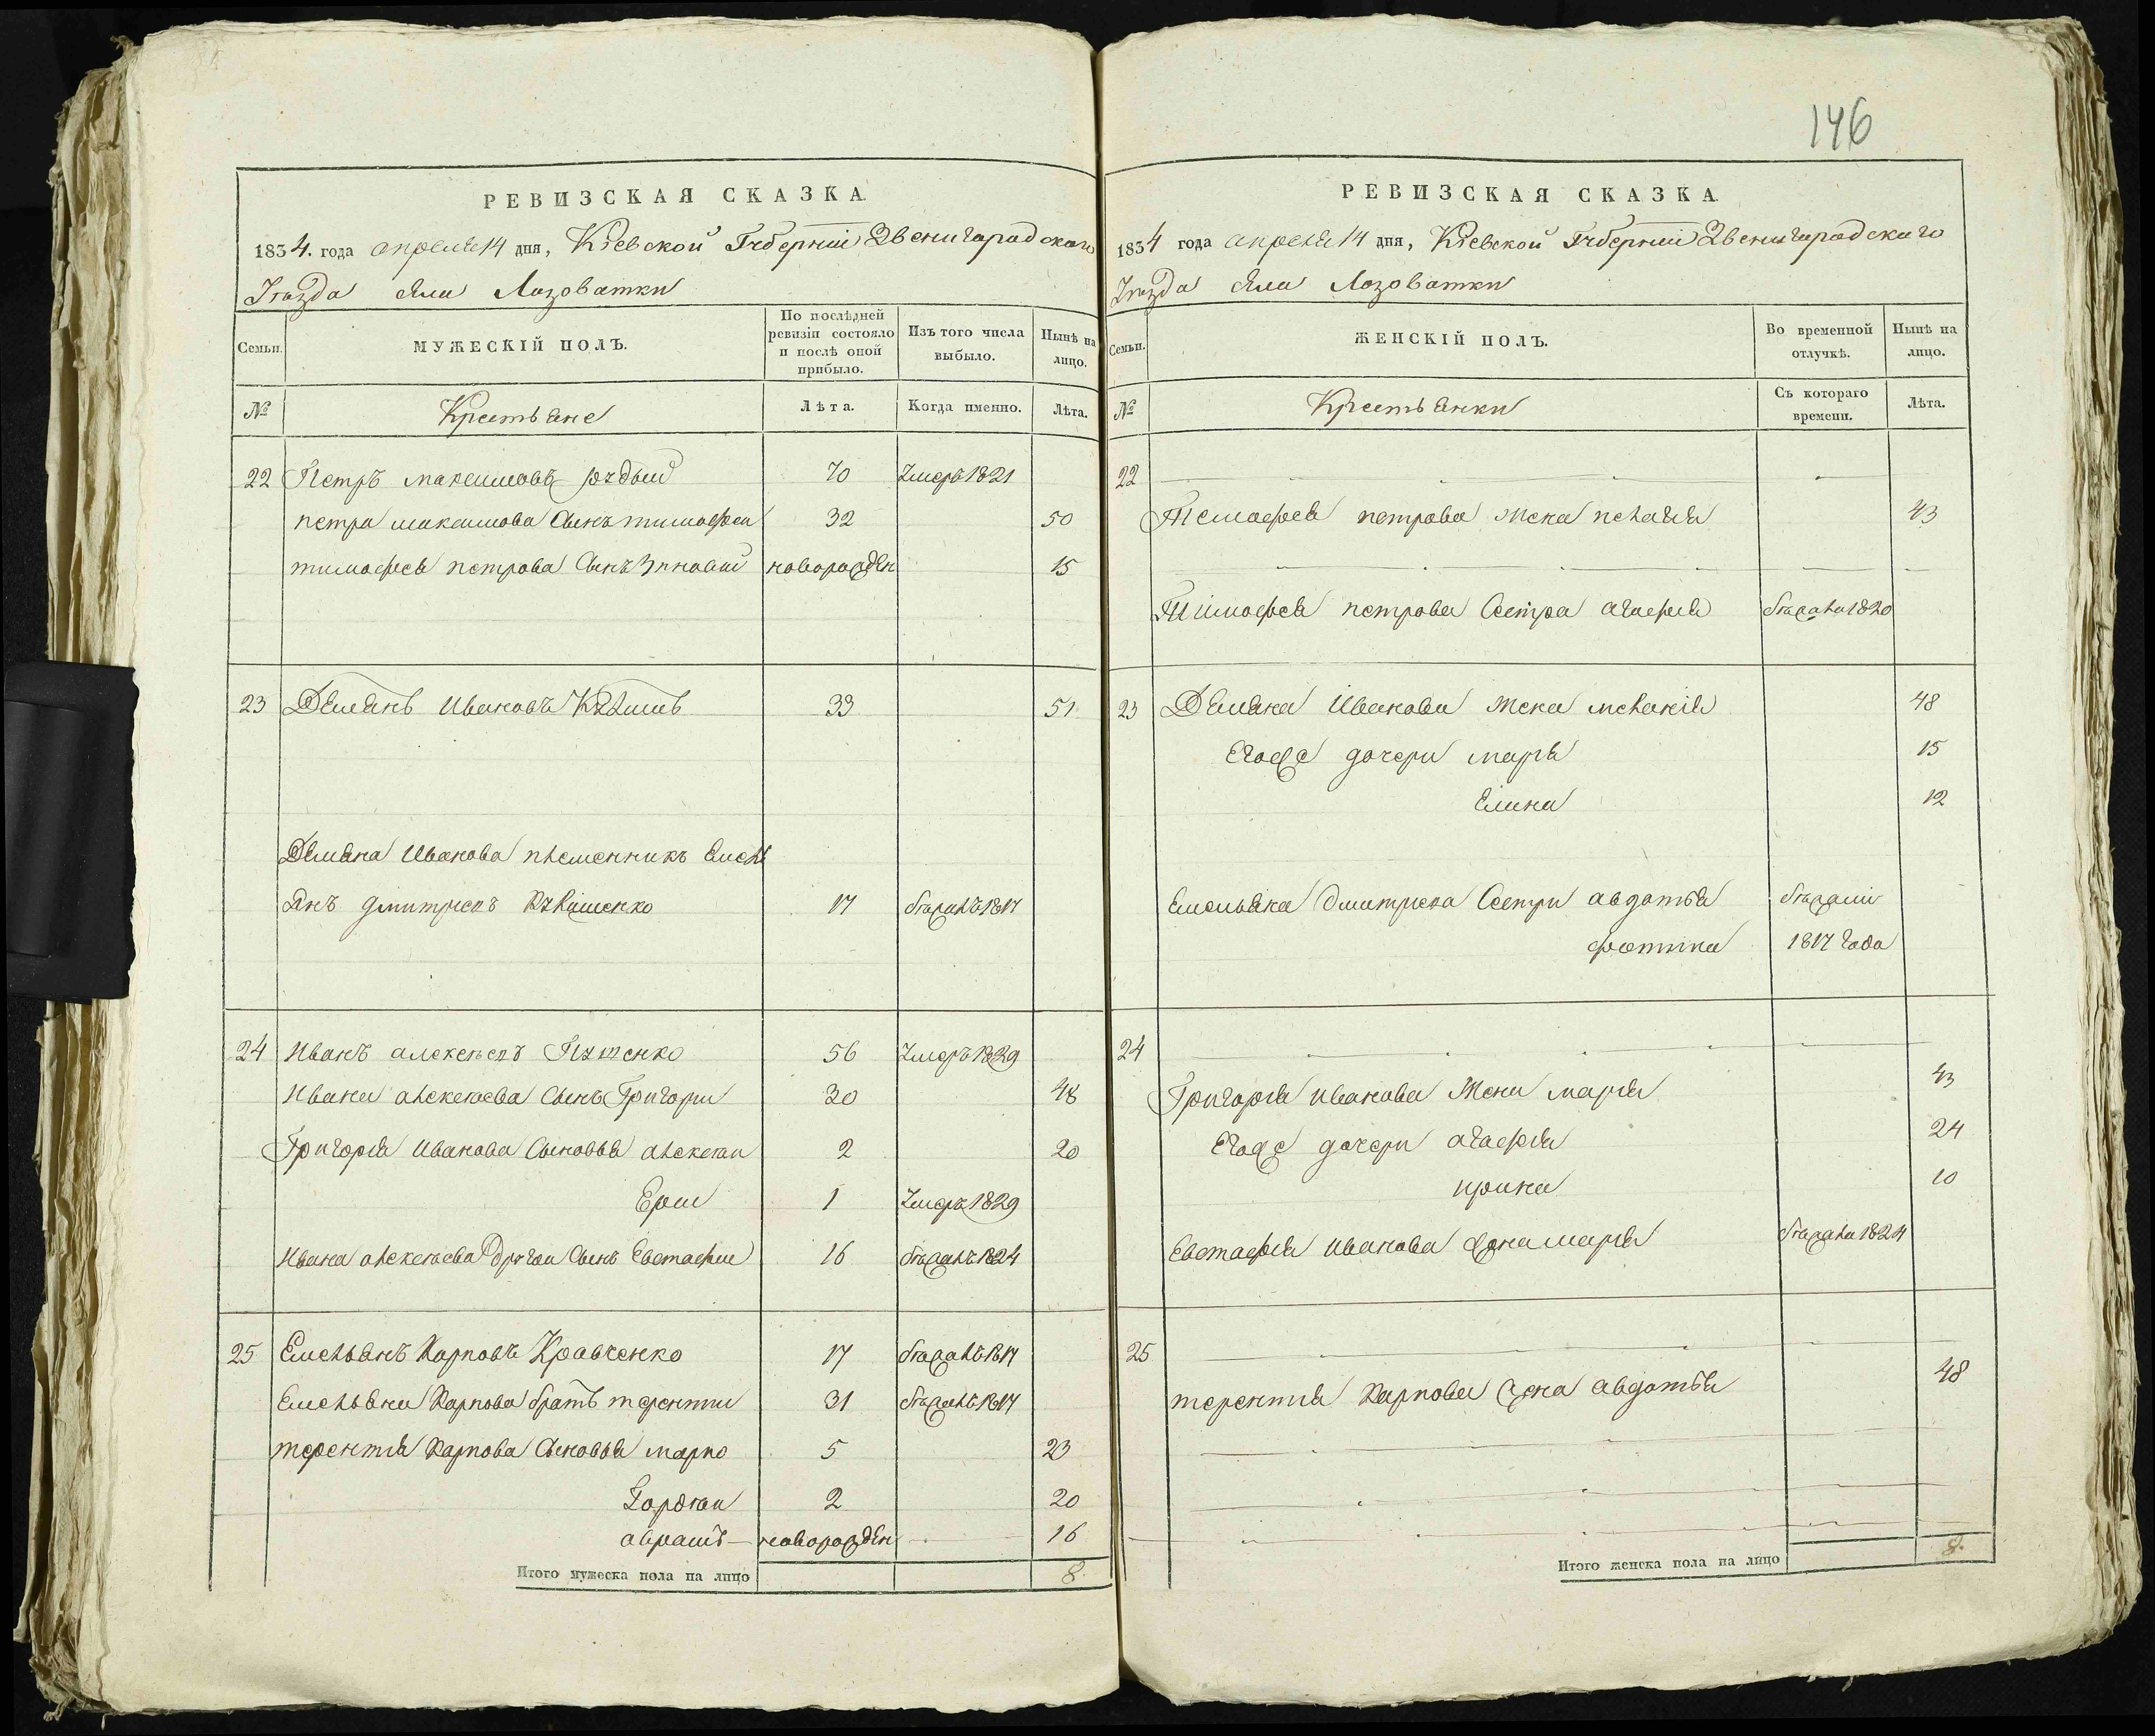 146
РЕВИЗСКАЯ СКАЗКА
1834. года апреля 14 дня, Кіевской Губерніи Звенигородскаго
Уѣзда села Лозоватки
Семьи.
МУЖЕСКІЙ ПОЛЪ.
По послѣдней
ревизіи состояло
и послѣ оной
прибыло.
Изъ того числа
выбыло.
Нынѣ на
лицо.
№
Крестьяне
Лѣта.
Когда именно.
Лѣта.
22 Петръ максимовъ рудый 70 умеръ 1821
петра максимова сынъ тимофеи 32 50
тимофея петрова сынъ Зиновий новорожден 15
23 Демянъ Ивановъ 33 51
Демяна Иванова племенникъ Емель
янъ дмитриевъ 17 бежалъ 1817
24 Иванъ алексеевъ 56 умеръ 1829
Ивана алексеева сынъ Григори 30 48
Григорія Иванова сыновья алексеи 2 20
1 умеръ 1829
Ивана алексеева другои сынъ Евстафии 16 бежалъ 1824
25 Емельянъ Карповъ Кравченко 17 бежалъ 1817
Емельяна Карпова братъ терентии 31 бежалъ 1817
терентия Карпова сыновья марко 5 23
Гордеи 2 20
аврамъ новорожден 16
Итого мужеска пола на лицо 8
РЕВИЗСКАЯ СКАЗКА
1834 года апреля 14 дня, Кіевской Губерніи Звенигородскаго
Уѣзда села Лозоватки
Семьи.
ЖЕНСКІЙ ПОЛЪ.
Во временной
отлучкѣ.
Нынѣ на
лицо.
№
Крестьянки
Съ котораго
времени.
Лѣта.
22
Темофея петрова жена пелагия 43
Тимофея петрова сестра агафия бежала 1820
23 Демяна Иванова жена мелания 48
Егоже дочери маря 15
Елина 12
Емельяна Дмитриева сестри авдотья бежали
1817 года
24
Григорія иванова жена марія 43
Егоже дочери агафия 24
ирина 10
Евстафия иванова жена мария бежала 1824
25
терентия Карпова жена авдотья 48
Итого женска пола на лицо 8.